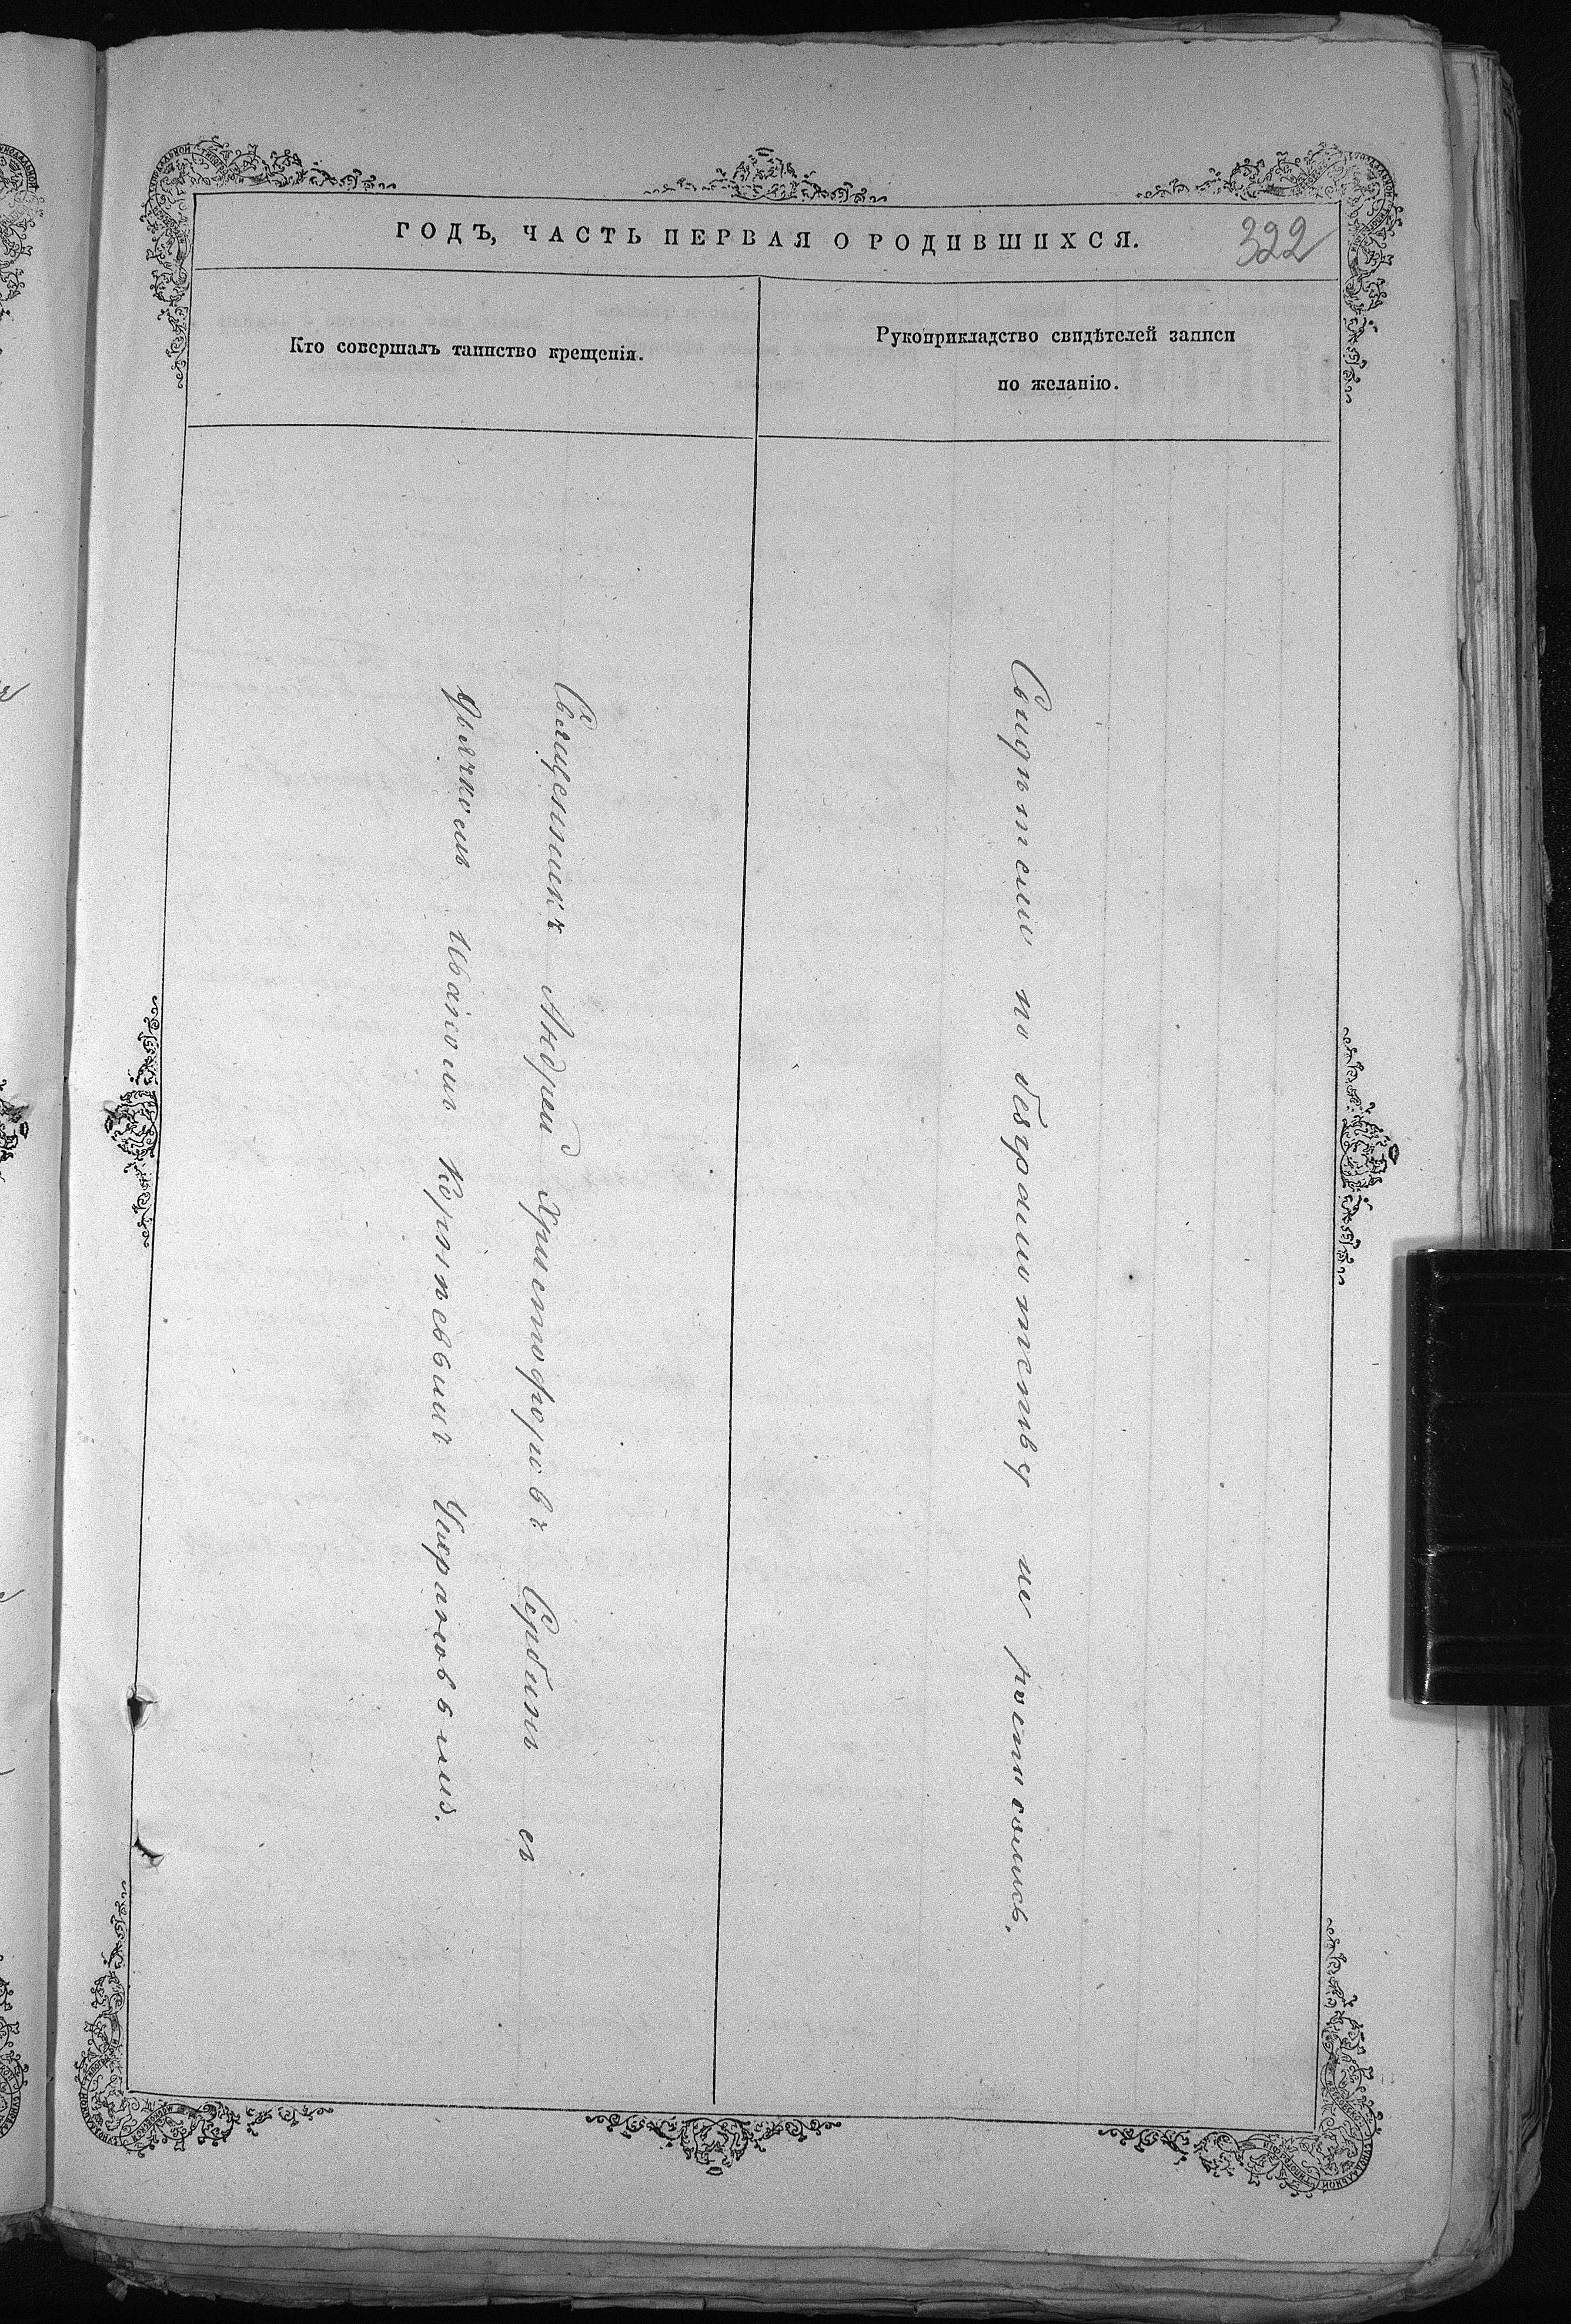 ГОДЪ, ЧАСТЬ ПЕРВАЯ О РОДИВШИХСЯ.
322
Кто совершалъ таинство крещенія.
Рукоприкладство свидѣтелей записи
по желанію.
Священникъ Андрей Христофоровъ Сербинъ съ
дьячкомъ Иваномъ Корнѣевымъ
Свидѣтели по безграмотству не росписались.